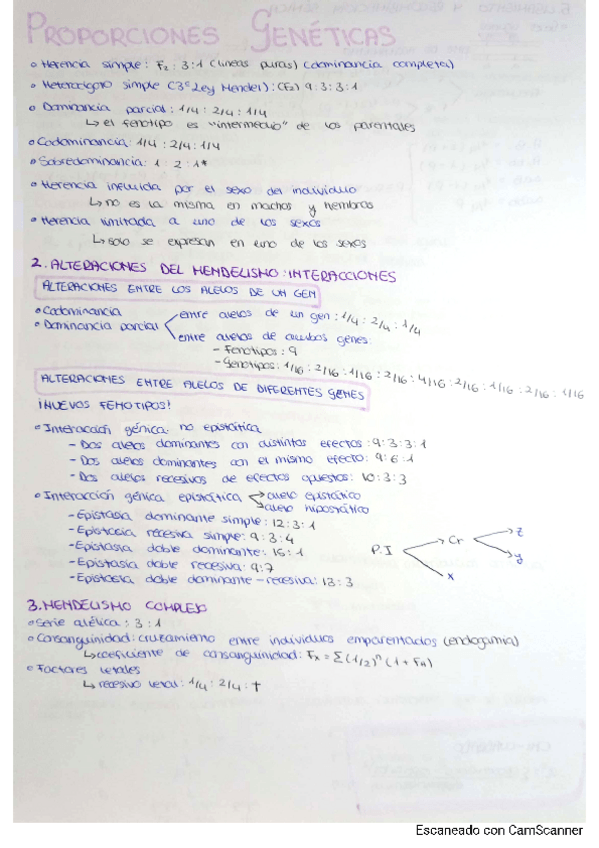 PROPORCIONES GENÉTICAS
• Herencia simple: F₂: 3:1 (líneas puras) (dominancia completa)
• Heterocigoto simple (3ª Ley Mendel): (F₂) 9:3:3:1
• Dominancia parcial: 1/4 : 2/4 : 1/4
↳ el fenotipo es "intermedio" de los parentales
• Codominancia: 1/4 : 2/4 : 1/4
• Sobredominancia: 1 : 2 : 1*
• Herencia influida por el sexo del individuo
↳ no es la misma en machos y hembras
• Herencia limitada a uno de los sexos
↳ solo se expresan en uno de los sexos
2. ALTERACIONES DEL MENDELISMO: INTERACCIONES
ALTERACIONES ENTRE LOS ALELOS DE UN GEN
• Codominancia
• Dominancia parcial
entre alelos de un gen: 1/4 : 2/4 : 1/4
entre alelos de ambos genes:
- Fenotipos: 9
- Genotipos: 1/16 : 2/16 : 1/16 : 2/16 : 4/16 : 2/16 : 1/16 : 2/16 : 1/16
ALTERACIONES ENTRE ALELOS DE DIFERENTES GENES
¡NUEVOS FENOTIPOS!
• Interacción génica no epistática
- Dos alelos dominantes con distintos efectos: 9:3:3:1
- Dos alelos dominantes con el mismo efecto: 9:6:1
- Dos alelos recesivos de efectos opuestos: 10:3:3
• Interacción génica epistática → alelo epistático
→ alelo hipostático
- Epistasia dominante simple: 12:3:1
- Epistasia recesiva simple: 9:3:4
- Epistasia doble dominante: 15:1
- Epistasia doble recesiva: 9:7
- Epistasia doble dominante-recesiva: 13:3
P.I → Cr → z
y
x
3. MENDELISMO COMPLEJO
• Serie alélica: 3:1
• Consanguinidad: cruzamiento entre individuos emparentados (endogamia)
↳ coeficiente de consanguinidad: Fx = Σ(1/2)ⁿ (1 + FA)
• Factores letales
↳ recesivo letal: 1/4 : 2/4 : †
Escaneado con CamScanner